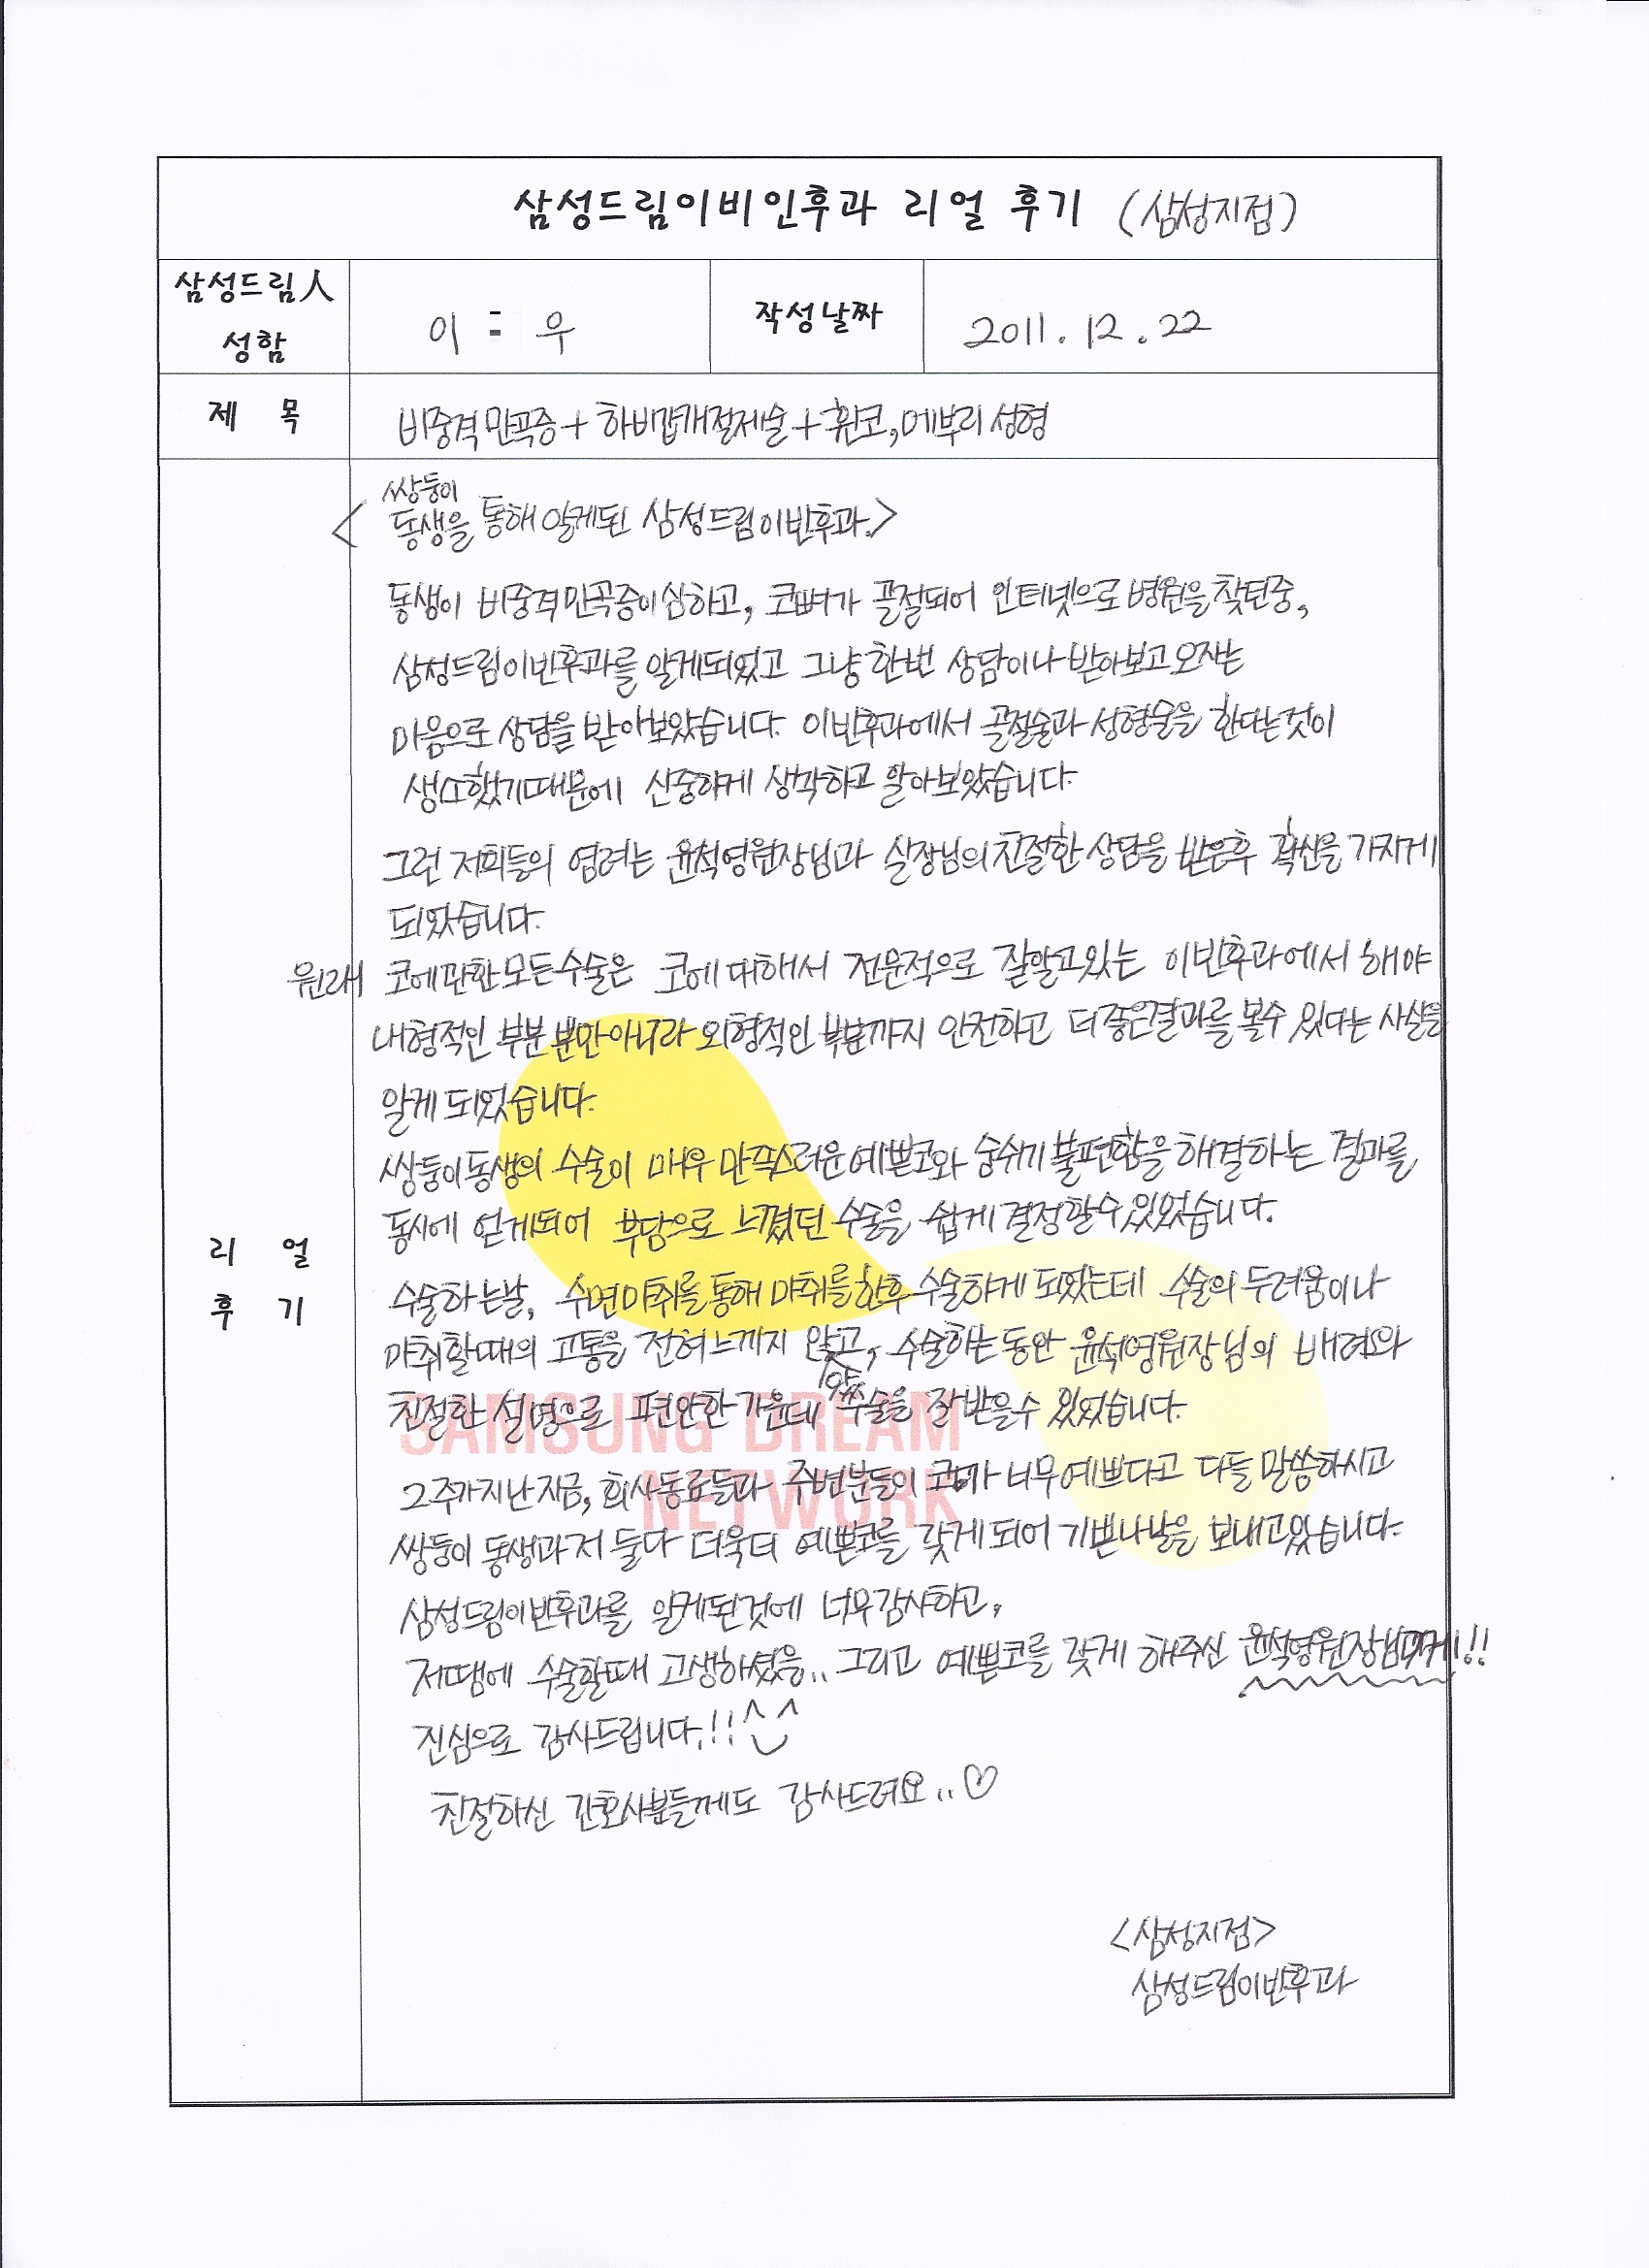 삼성드림이비인후과 리얼 후기 (삼성지점)
삼성드림人
성함
이 우
작성날짜
2011.12.22
제 목
비중격만곡증+하비갑개절제술+휜코,메부리성형
쌍둥이
<동생을 통해 알게된 삼성드림이빈후과.>
동생이 비중격만곡증이심하고, 코뼈가 골절되어 인터넷으로 병원을 찾던중,
삼성드림이빈후과를 알게되었고 그냥 한번 상담이나 받아보고오자는
마음으로 상담을 받아보았습니다. 이빈후과에서 골절술과 성형술을 한다는것이
생소했기때문에 신중하게 생각하고 알아보았습니다.
그런 저희들의 염려는 윤석영원장님과 실장님의 친절한 상담을 받은후 확신을 가지게
되었습니다.
원래 코에관한 모든수술은 코에 대해서 전문적으로 잘알고있는 이빈후과에서 해야
내형적인 부분 뿐만아니라 외형적인 부분까지 안전하고 더좋은결과를 볼수 있다는 사실을
알게 되었습니다.
쌍둥이동생의 수술이 매우 만족스러운예쁜코와 숨쉬기 불편함을 해결하는 결과를
동시에 얻게되어 부담으로 느꼈던 수술을 쉽게 결정할수있었습니다.
수술하는날, 수면마취를 통해 마취를 한후 수술하게 되었는데 수술의 두려움이나
마취할때의 고통을 전혀느끼지 않고, 수술하는 동안 윤석영원장님의 배려와
친절한 설명으로 편안한 가운데 수술을 잘 받을수 있었습니다.
2주가지난지금, 회사동료들과 주변분들이 코가 너무예쁘다고 다들 말씀하시고
쌍둥이 동생과저 둘다 더욱더 예쁜코를 갖게되어 기쁜나날을 보내고있습니다.
SAMSUNG DREAM
NETWORK
삼성드림이빈후과를 알게된것에 너무감사하고,
저땜에 수술할때 고생하셨을.. 그리고 예쁜코를 갖게 해주신 윤석영원장님께!!
진심으로 감사드립니다.!!^^
친절하신 간호사분들께도 감사드려요..♡
리 얼
후 기
<삼성지점>
삼성드림이빈후과